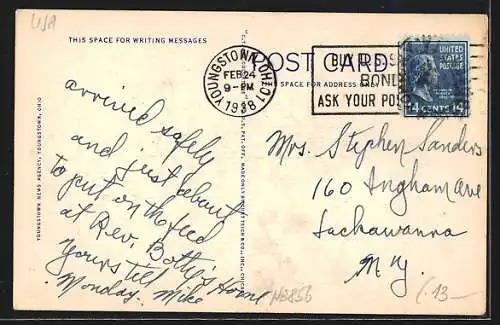 USA
THIS SPACE FOR WRITING MESSAGES
POST CARD
THIS SPACE FOR ADDRESS ONLY
YOUNGSTOWN, OHIO 1
FEB 24
9-PM
1938
BUY U.S.
BOND
ASK YOUR PO
UNITED
STATES
POSTAGE
14 CENTS 14
arrived safely
and just about
to put on the feed
at Rev. Botty's Home
Yours till
Monday. Mike
Mrs. Stephen Sanders
160 Ingham Ave
Lackawanna
N.Y.
YOUNGSTOWN NEWS AGENCY, YOUNGSTOWN, OHIO
13-